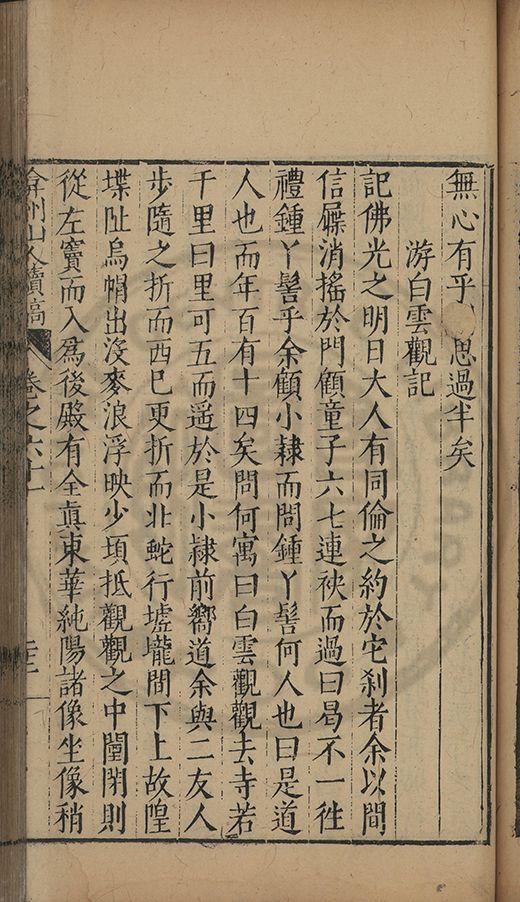 無心有乎思過半矣
游白雲觀記
記佛光之明日大人有同倫之約於它剎者余以間
信屧消搖於門顧童子六七連袂而過曰曷不一徃
禮鍾丫髻乎余顧小隷而問鍾丫髻何人也曰是道
人也而年百有十四矣問何寓曰白雲觀觀去寺若
千里曰里可五而遥於是小隷前嚮道余與二友人
步隨之折而西巳更折而北蛇行墟壠間下上故隍
堞阯烏㡌出沒麥浪浮映少頃抵觀觀之中闈閉則
從左竇而入爲後殿有全真東華純陽諸像坐像稍
弇州山人續稿 卷之六十